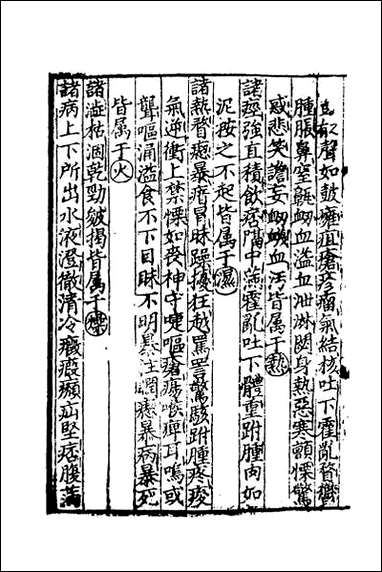 聲如皷癰疽瘡疹瘤氣結核吐下霍亂瞀鬱
腫脹鼻窒鼽衂血溢血泄淋閟身熱惡寒顫慄驚
惑悲笑譫妄衂衊血汚皆属于熱
諸痙強直積飲痞膈中滿霍亂吐下體重跗腫肉如
泥按之不起皆属于濕
諸熱瞀瘛暴瘖冒昧躁擾狂越罵詈驚駭跗腫疼痠
氣逆衝上禁慄如喪神守嚏嘔瘡瘍喉痺耳鳴或
聾嘔涌溢食不下目昧不明暴注瞤瘛暴病暴死
皆属于火
諸澁枯涸乾勁皴揭皆属于燥
諸病上下所出水液澄徹清冷癥瘕癩疝堅痞腹滿